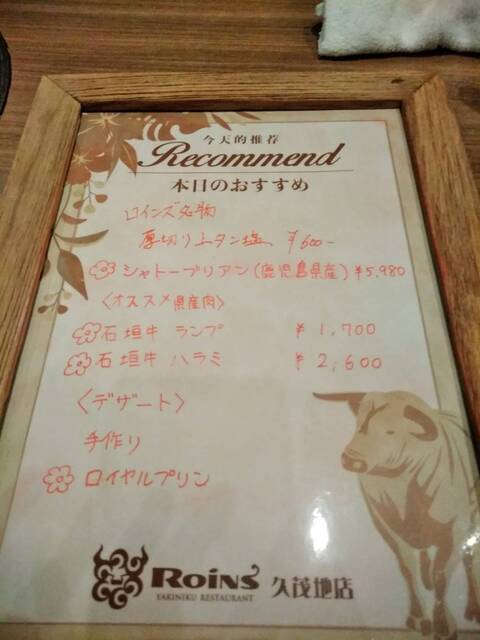 今天的推荐
Recommend
本日のおすすめ
ロインズ名物
厚切り上タン塩 ¥600-
シャトーブリアン(鹿児島県産) ¥5,980
〈オススメ県産肉〉
石垣牛 ランプ ¥1,700
石垣牛 ハラミ ¥2,600
〈デザート〉
手作り
ロイヤルプリン
ROINS 久茂地店
YAKINIKU RESTAURANT